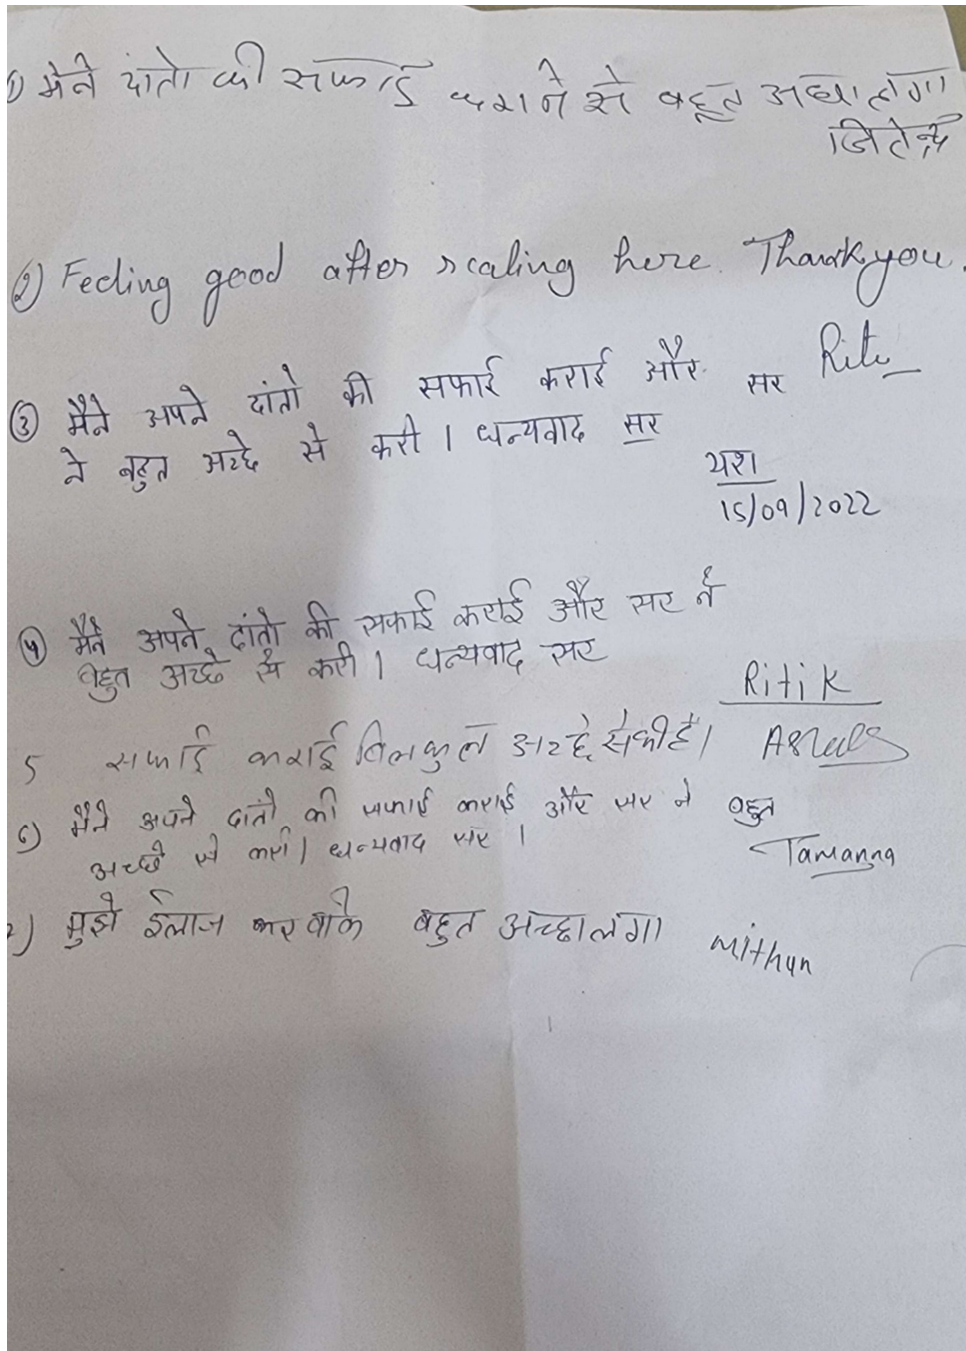 1) मेने दांतो की सफाई कराने से बहूत अच्छा लगा
जितेन्द्र
2) Feeling good after scaling here. Thankyou.
Ritu
③ मैने अपने दांतो की सफाई कराई और सर
ने बहुत अच्छे से करी । धन्यवाद सर
यश
15/09/2022
④ मैने अपने दांतो की सफाई कराई और सर ने
बहुत अच्छे से करी । धन्यवाद सर
Ritik
5 सफाई कराई बिलकुल अच्छे से की है।
6) मैने अपने दांतो की सफाई कराई और सर ने बहुत
अच्छे से करी । धन्यवाद सर ।
Tamanna
7) मुझे ईलाज करवाके बहुत अच्छा लगा
mithun